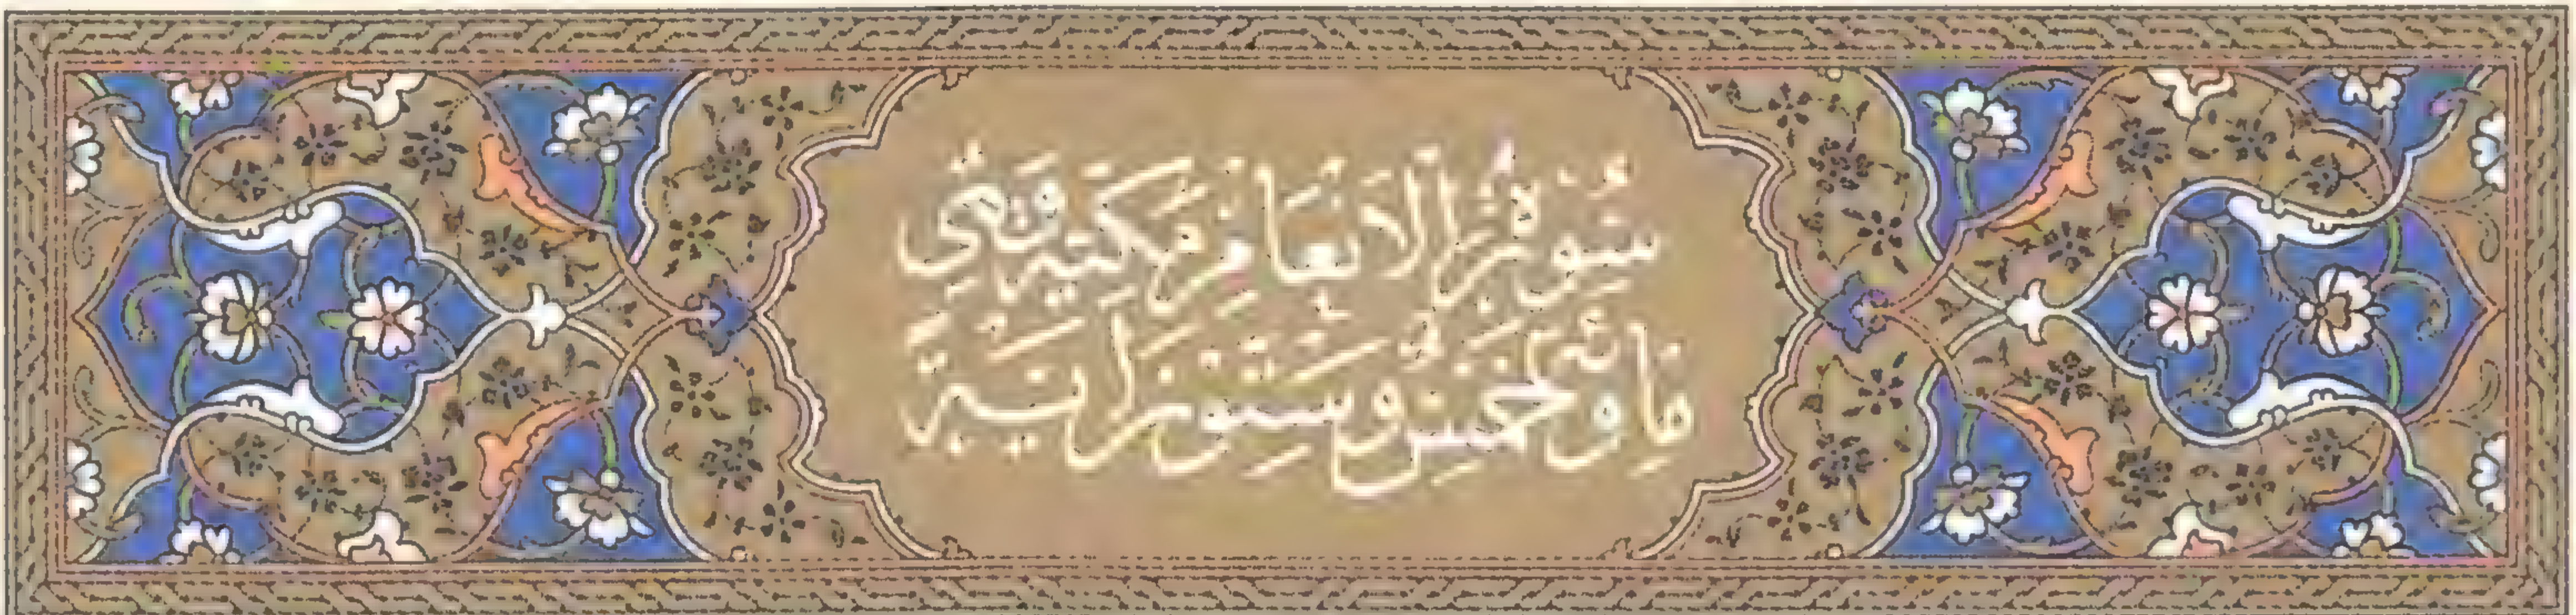 سُورَةُ الْاَنْعَامِ مَكِّيَّةٌ وَهِيَ
مِائَةٌ وَخَمْسٌ وَسِتُّونَ اٰيَةً